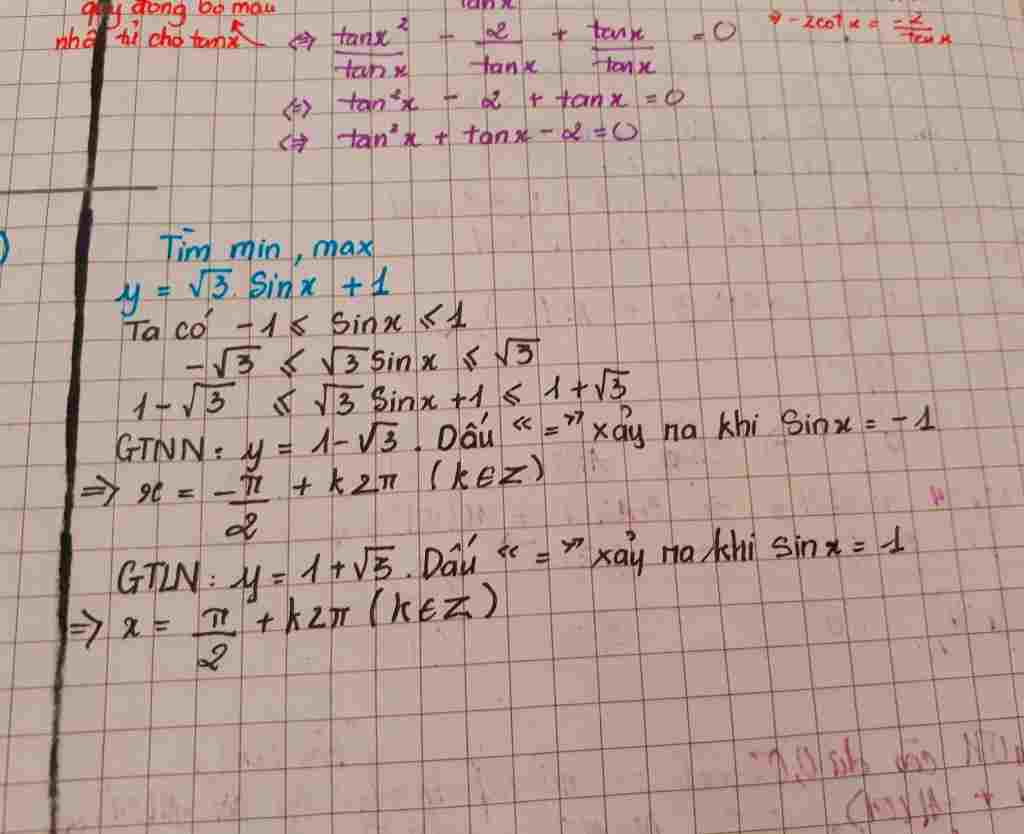 quy đồng bỏ mẫu
nhân tử cho tanx
tanx
⇒ -2cotx = -2/tanx
⇔ tanx²/tanx - 2/tanx + tanx/tanx = 0
⇔ tan²x - 2 + tanx = 0
⇔ tan²x + tanx - 2 = 0
)
Tìm min, max
y = √3. Sinx + 1
Ta có -1 ≤ Sinx ≤ 1
-√3 ≤ √3 Sinx ≤ √3
1-√3 ≤ √3 Sinx+1 ≤ 1+√3
GTNN: y = 1-√3. Dấu "=" xảy ra khi Sinx = -1
⇒ x = -π/2 + k2π (k∈Z)
GTLN: y = 1+√3. Dấu "=" xảy ra khi sinx = 1
⇒ x = π/2 + k2π (k∈Z)